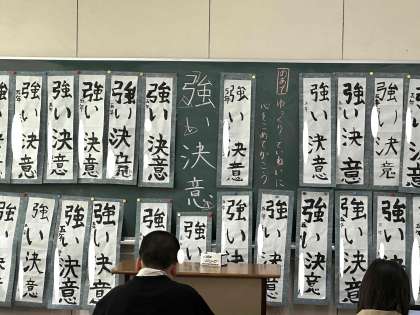 強い決意
強い決意
強い決意
強い決意
強い決意
強い決意
強い決意
めあて
ゆっくりていねいに
心をこめてかこう
強い決意
強い決意
強い決意
強い決意
強い決意
強い決意
強い決意
強い決意
強い
強い
強い決意
強い決意
強い決意
強い決意
強い決意